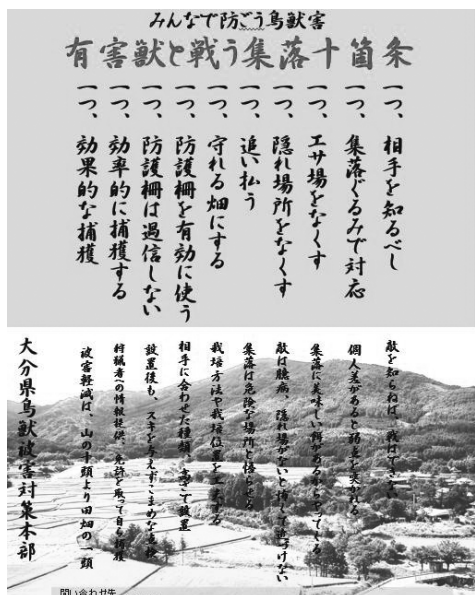 みんなで防ごう鳥獣害
有害獣と戦う集落十箇条
一つ、相手を知るべし
一つ、集落ぐるみで対応
一つ、エサ場をなくす
一つ、隠れ場所をなくす
一つ、追い払う
一つ、守れる畑にする
一つ、防護柵を有効に使う
一つ、防護柵は過信しない
一つ、効率的に捕獲する
一つ、効果的な捕獲
敵を知らねば、戦はできない
個人差があると弱点を突かれる
集落に美味しい餌があるからやってくる
敵は臆病、隠れ場がないと怖くて近づけない
集落は危険な場所と悟らせる
栽培方法や栽培位置を工夫する
相手に合わせた種類、高さで設置
設置後も、スキを与えずこまめな点検
狩猟者への情報提供、免許を取って自ら捕獲
被害軽減は、山の十頭より田畑の一頭
大分県鳥獣被害対策本部
問い合わせ先